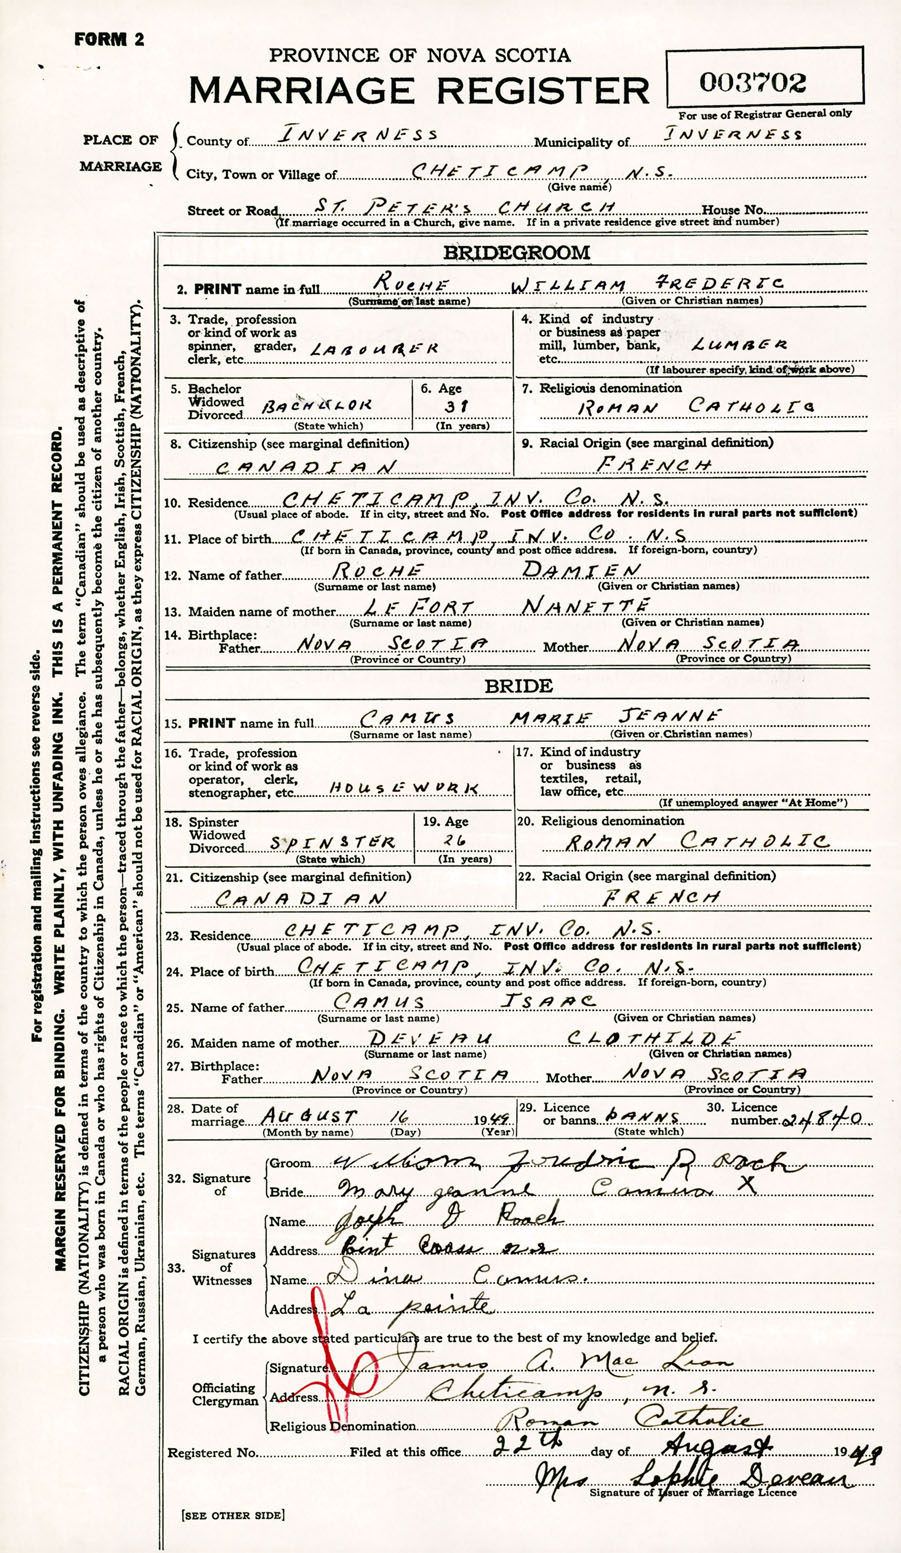 FORM 2
PROVINCE OF NOVA SCOTIA
MARRIAGE REGISTER
003702
For use of Registrar General only
PLACE OF MARRIAGE
County of INVERNESS Municipality of INVERNESS
City, Town or Village of CHETICAMP, N.S.
(Give name)
Street or Road ST. PETER'S CHURCH House No.
(If marriage occurred in a Church, give name. If in a private residence give street and number)
BRIDEGROOM
2. PRINT name in full ROCHE WILLIAM FREDERIC
(Surname or last name) (Given or Christian names)
3. Trade, profession
or kind of work as
spinner, grader,
clerk, etc. LABOURER
4. Kind of industry
or business as paper
mill, lumber, bank,
etc. LUMBER
(If labourer specify, kind of work above)
5. Bachelor
Widowed
Divorced BACHELOR
(State which)
6. Age
31
(In years)
7. Religious denomination
ROMAN CATHOLIC
8. Citizenship (see marginal definition)
CANADIAN
9. Racial Origin (see marginal definition)
FRENCH
10. Residence CHETICAMP, INV. CO. N.S.
(Usual place of abode. If in city, street and No. Post Office address for residents in rural parts not sufficient)
11. Place of birth CHETICAMP, INV. CO. N.S
(If born in Canada, province, county and post office address. If foreign-born, country)
12. Name of father ROCHE DAMIEN
(Surname or last name) (Given or Christian names)
13. Maiden name of mother LE FORT NANETTE
(Surname or last name) (Given or Christian names)
14. Birthplace:
Father NOVA SCOTIA Mother NOVA SCOTIA
(Province or Country) (Province or Country)
BRIDE
15. PRINT name in full CAMUS MARIE JEANNE
(Surname or last name) (Given or Christian names)
16. Trade, profession
or kind of work as
operator, clerk,
stenographer, etc. HOUSEWORK
17. Kind of industry
or business as
textiles, retail,
law office, etc.
(If unemployed answer "At Home")
18. Spinster
Widowed
Divorced SPINSTER
(State which)
19. Age
26
(In years)
20. Religious denomination
ROMAN CATHOLIC
21. Citizenship (see marginal definition)
CANADIAN
22. Racial Origin (see marginal definition)
FRENCH
23. Residence CHETICAMP, INV. CO. N.S.
(Usual place of abode. If in city, street and No. Post Office address for residents in rural parts not sufficient)
24. Place of birth CHETICAMP, INV. CO. N.S.
(If born in Canada, province, county and post office address. If foreign-born, country)
25. Name of father CAMUS ISAAC
(Surname or last name) (Given or Christian names)
26. Maiden name of mother DEVEAU CLOTHILDE
(Surname or last name) (Given or Christian names)
27. Birthplace:
Father NOVA SCOTIA Mother NOVA SCOTIA
(Province or Country) (Province or Country)
28. Date of
marriage AUGUST 16 1949
(Month by name) (Day) (Year)
29. Licence
or banns BANNS
(State which)
30. Licence
number 24840
32. Signature of
Groom William Fredric Roach
Bride Mary Jeanne Camus X
33. Signatures of Witnesses
Name Joseph D Roach
Address Point Cross N S
Name Dina Camus.
Address La pointe
I certify the above stated particulars are true to the best of my knowledge and belief.
Officiating Clergyman
Signature James A. Mac Lean
Address Cheticamp, N. S.
Religious Denomination Roman Catholic
Registered No. Filed at this office 22th day of August 1949
Mrs Sophie Deveau
Signature of Issuer of Marriage Licence
[SEE OTHER SIDE]
For registration and mailing instructions see reverse side.
MARGIN RESERVED FOR BINDING. WRITE PLAINLY, WITH UNFADING INK. THIS IS A PERMANENT RECORD.
CITIZENSHIP (NATIONALITY) is defined in terms of the country to which the person owes allegiance. The term "Canadian" should be used as descriptive of
a person who was born in Canada or who has rights of Citizenship in Canada, unless he or she has subsequently become the citizen of another country.
RACIAL ORIGIN is defined in terms of the people or race to which the person—traced through the father—belongs, whether English, Irish, Scottish, French,
German, Russian, Ukrainian, etc. The terms "Canadian" or "American" should not be used for RACIAL ORIGIN, as they express CITIZENSHIP (NATIONALITY).